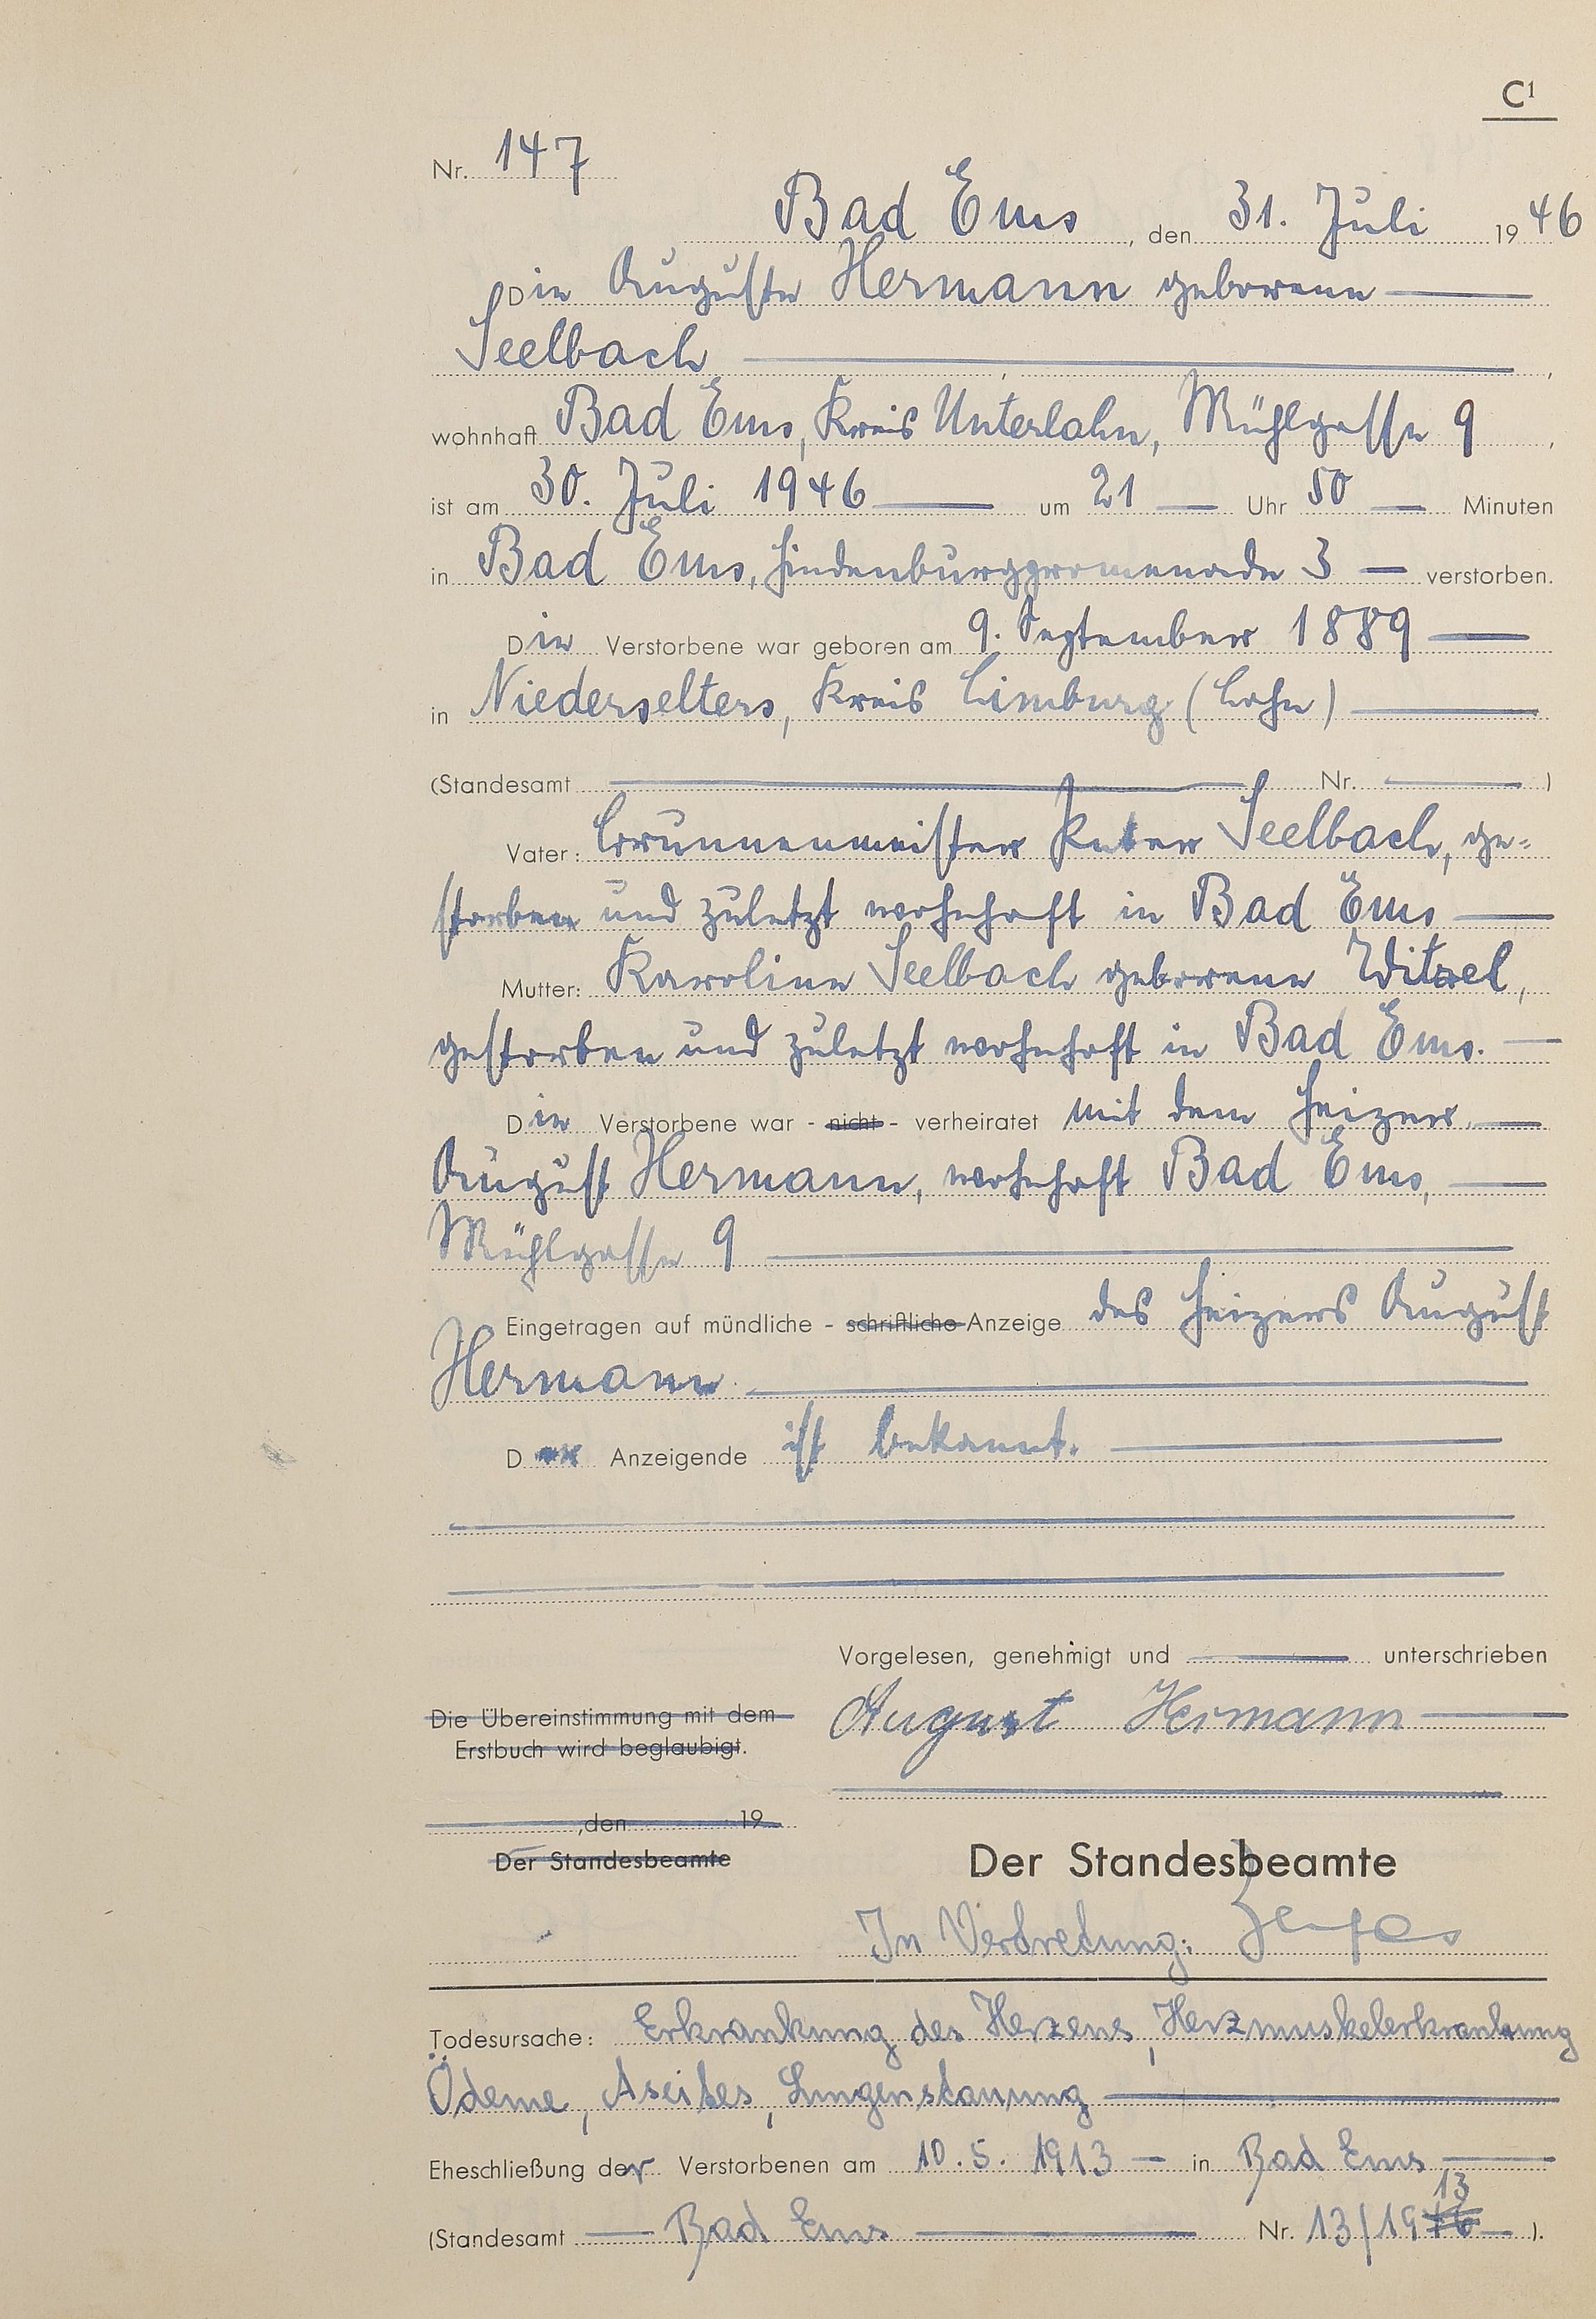 C1
Nr. 147
Bad Ems, den 31. Juli 1946
Die Auguste Hermann geborene
Seelbach,
wohnhaft Bad Ems, Kreis Unterlahn, Mühlgasse 9,
ist am 30. Juli 1946 um 21 Uhr 50 Minuten
in Bad Ems, Hindenburgpromenade 3 verstorben.
Die Verstorbene war geboren am 9. September 1889
in Niederselters, Kreis Limburg (Lahn)
(Standesamt Nr. )
Vater: Brunnenmeister Peter Seelbach, ge=
storben und zuletzt wohnhaft in Bad Ems
Mutter: Karoline Seelbach geborene Witzel,
gestorben und zuletzt wohnhaft in Bad Ems.
Die Verstorbene war - nicht - verheiratet mit dem Heizer
August Hermann, wohnhaft Bad Ems,
Mühlgasse 9
Eingetragen auf mündliche - schriftliche Anzeige des Heizers August
Hermann
Der Anzeigende ist bekannt.
Vorgelesen, genehmigt und unterschrieben
Die Übereinstimmung mit dem
Erstbuch wird beglaubigt.
August Hermann
, den 19
Der Standesbeamte
Der Standesbeamte
In Vertretung:
Todesursache: Erkrankung des Herzens, Herzmuskelerkrankung
Ödeme, Aseites, Lungenstauung
Eheschließung der Verstorbenen am 10.5. 1913 in Bad Ems
(Standesamt Bad Ems Nr. 13/1913 ).